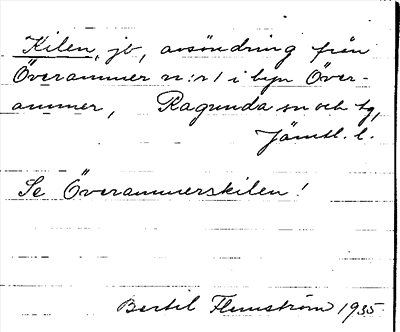 Kilen, jb, avsöndring från
Överammer n:r 1 i byn Över-
ammer, Ragunda sn och tg,
Jämtl. l.
Se Överammerskilen!
Bertil Flemström 1935